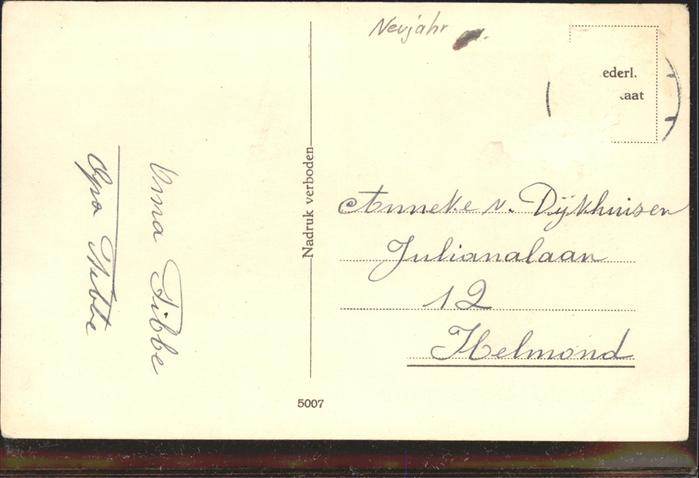 Neujahr
ederl.
aat
Oma Tibbe
Opa Tibbe
Nadruk verboden
Anneke v. Dijkhuisen
Julianalaan
12
Helmond
5007